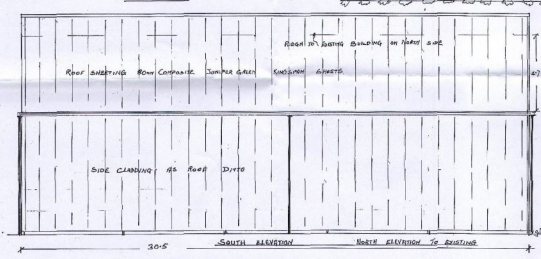 RIDGE TO EXISTING BUILDING ON NORTH SIDE
ROOF SHEETING 80MM COMPOSITE JUNIPER GREEN KINGSPAN SHEETS
SIDE CLADDING AS ROOF DITTO
SOUTH ELEVATION NORTH ELEVATION TO EXISTING
30.5